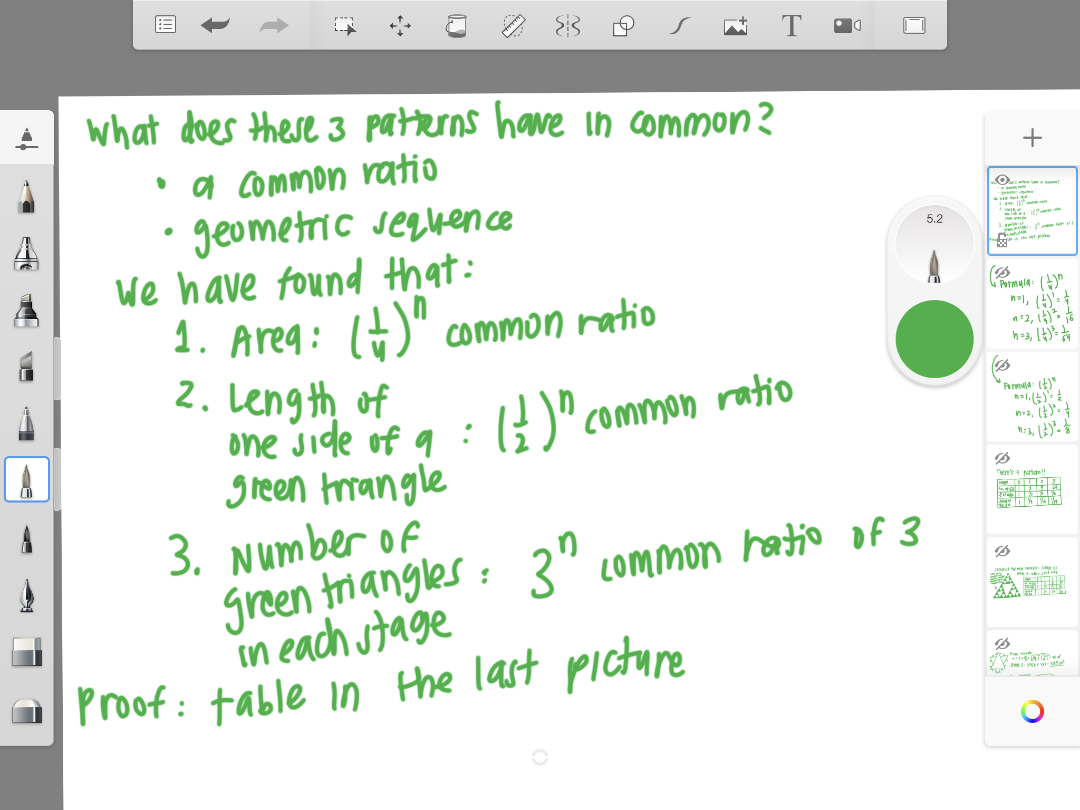 What does these 3 patterns have in common?
• a common ratio
• geometric sequence
We have found that:
1. Area: (1/4)^n common ratio
2. Length of
one side of a : (1/2)^n common ratio
green triangle
3. Number of
green triangles : 3^n common ratio of 3
in each stage
Proof: table in the last picture
5.2
T
Formula: (1/4)^n
n=1, (1/4)^1 = 1/4
n=2, (1/4)^2 = 1/16
n=3, (1/4)^3 = 1/64
Formula: (1/2)^n
n=1, (1/2)^1 = 1/2
n=2, (1/2)^2 = 1/4
n=3, (1/2)^3 = 1/8
There's a pattern!!